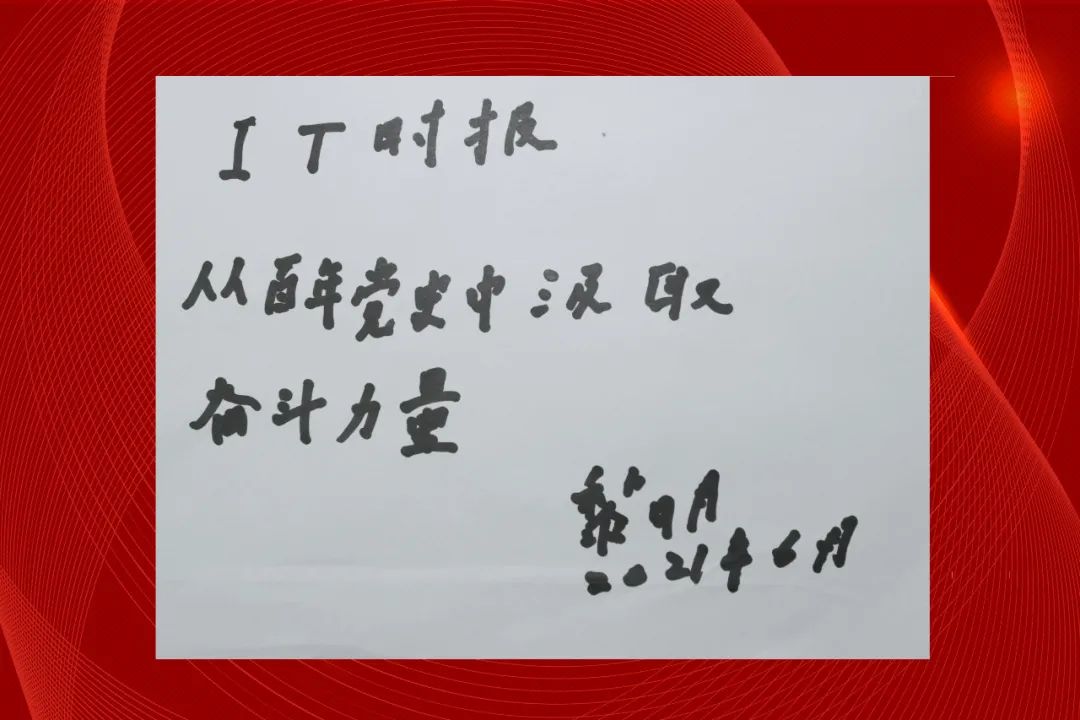 IT时报
从百年党史中汲取
奋斗力量
黎明
2021年6月